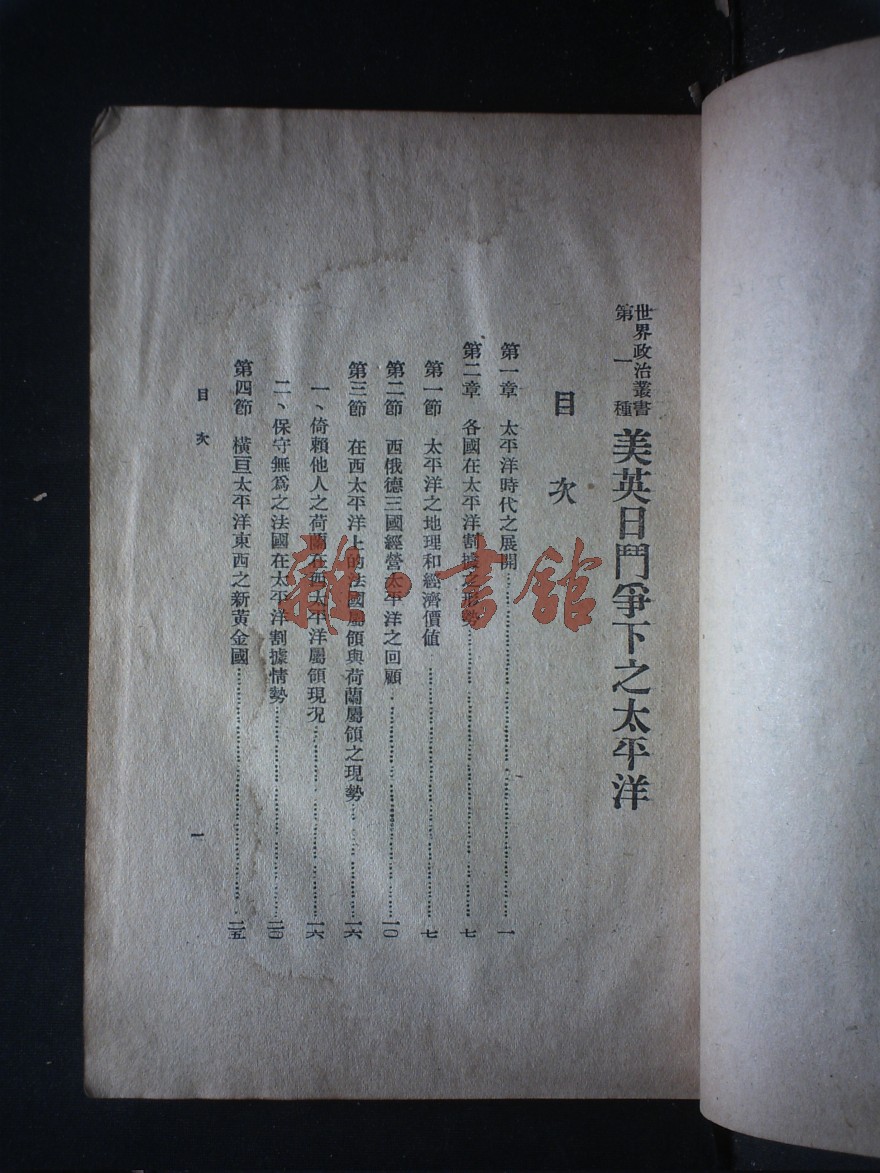 世界政治叢書
第一種
美英日鬥爭下之太平洋
目次
第一章 太平洋時代之展開……一
第二章 各國在太平洋割據之形勢……七
第一節 太平洋之地理和經濟價值……七
第二節 西俄德三國經營太平洋之回顧……一〇
第三節 在西太平洋上的法國屬領與荷蘭屬領之現勢……一六
一、倚賴他人之荷蘭在西太平洋屬領現況……一六
二、保守無爲之法國在太平洋割據情勢……二〇
第四節 橫亘太平洋東西之新黃金國……二五
目次
一
雜·書館